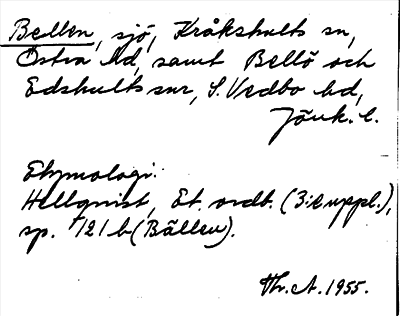 Bellen, sjö, Kråkshults sn,
Östra hd, samt Bellö och
Edshults snr, S. Vedbo hd,
Jönk. l.
Etymologi:
Hellquist, Et. ordb. (3:e uppl.),
sp. 121 b (Bällen).
Hr. A. 1955.